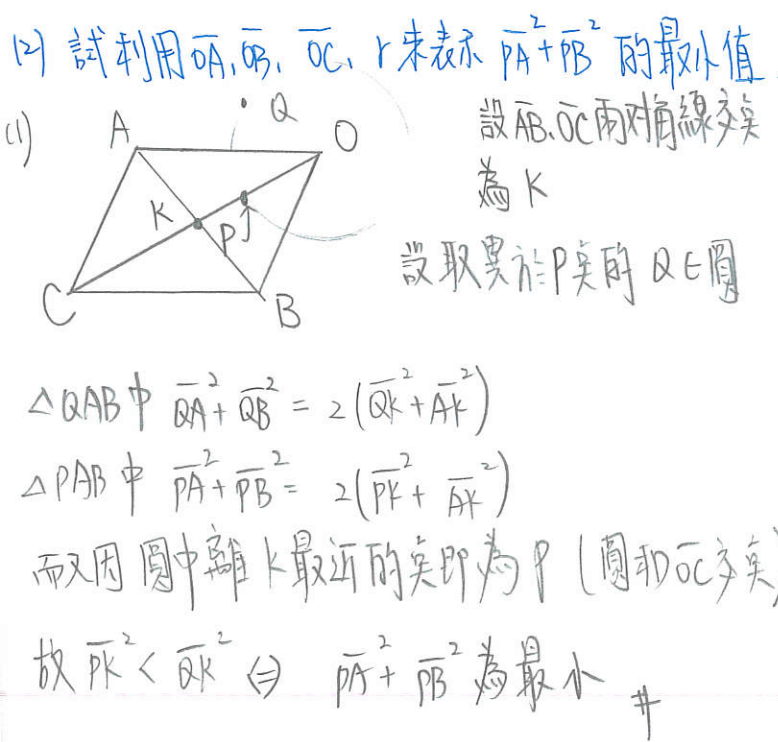 (2) 試利用 \overline{OA}、\overline{OB}、\overline{OC}、r 來表示 \overline{PA}²+\overline{PB}² 的最小值
(1)
A
Q
O
K
P
C
B
設 \overline{AB}、\overline{OC} 兩对角線交点
為 K
設取異於P点的 Q∈圓
△QAB中 \overline{QA}²+\overline{QB}² = 2(\overline{QK}²+\overline{AK}²)
△PAB中 \overline{PA}²+\overline{PB}² = 2(\overline{PK}²+\overline{AK}²)
而又因 圓中離 K 最近的点即為 P (圓和\overline{OC}交点)
故 \overline{PK}² < \overline{QK}² ⇔ \overline{PA}²+\overline{PB}² 為最小 #